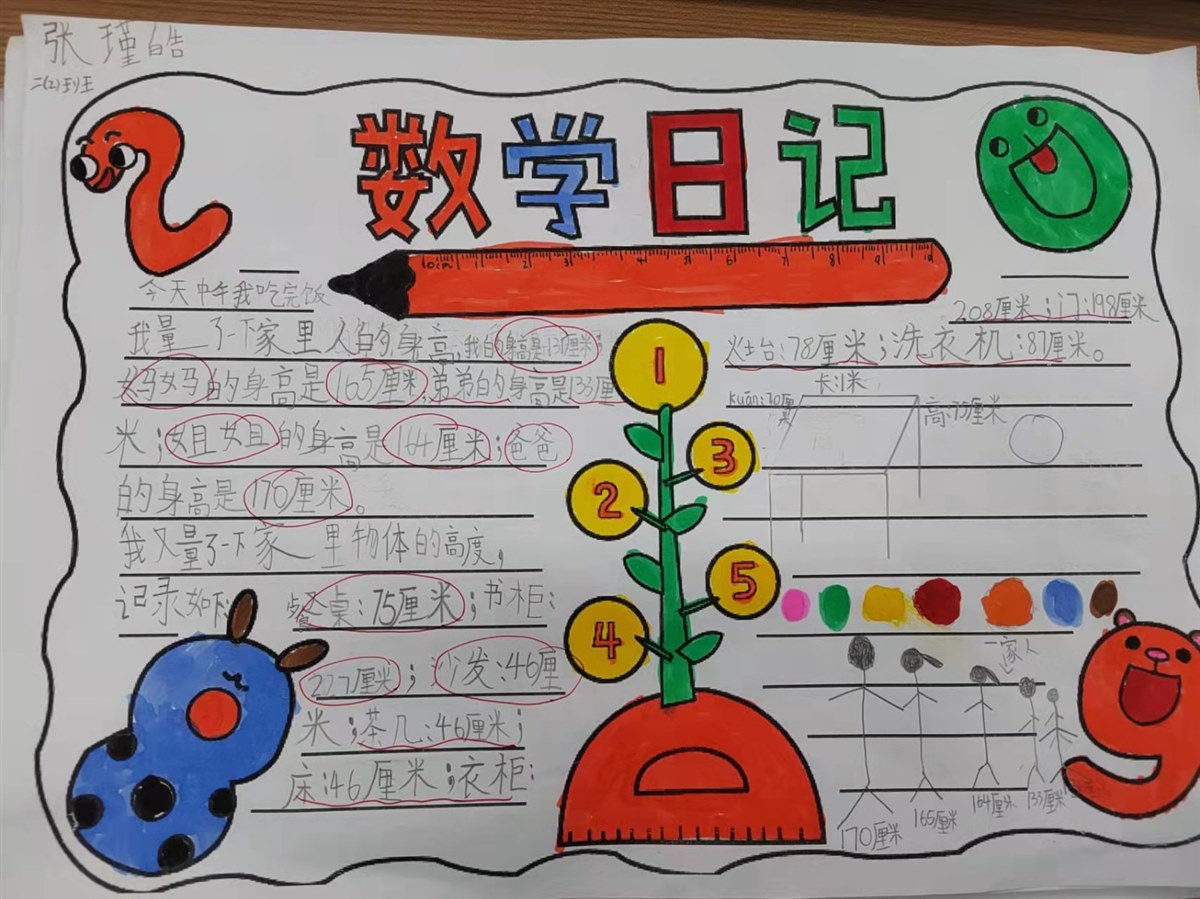 张瑾皓
二(2)班
数学日记
0cm 1 2 3 4 5 6 7 8 9 10
今天中午我吃完饭
我量了一下家里人的身高,我的身高是131厘米;
妈妈的身高是165厘米,弟弟的身高是133厘
米;姐姐的身高是164厘米;爸爸
的身高是170厘米。
我又量了一下家里物体的高度,
记录如下:餐桌:75厘米;书柜:
227厘米;沙发:46厘
米;茶几:46厘米;
床:46厘米;衣柜:
1
3
2
5
4
208厘米;门:198厘米
灶台:78厘米;洗衣机:87厘米。
长:1米
kuān:70厘米
高:75厘米
一家人
170厘米
165厘米
164厘米
133厘米